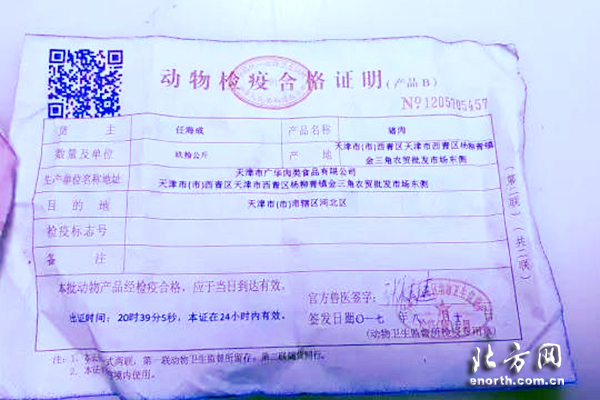 动物检疫合格证明(产品B)
№1205705457
货 主 任海成 产品名称 猪肉
数量及单位 玖拾公斤 产 地 天津市(市)西青区天津市西青区杨柳青镇
金三角农贸批发市场东侧
生产单位名称地址 天津市广华肉类食品有限公司
天津市(市)西青区天津市西青区杨柳青镇金三角农贸批发市场东侧
目 的 地 天津市(市)市辖区河北区
检疫标志号
备 注
本批动物产品经检疫合格,应于当日到达有效。
官方兽医签字:
出证时间: 20时39分5秒,本证在24小时内有效。
签发日期
(动物卫生监督所检疫专用章)
注:1. 本证 式两联,第一联动物卫生监督所留存,第二联随货同行。
2. 本证 境内使用。
第二联 共二联
北方网
enorth.com.cn